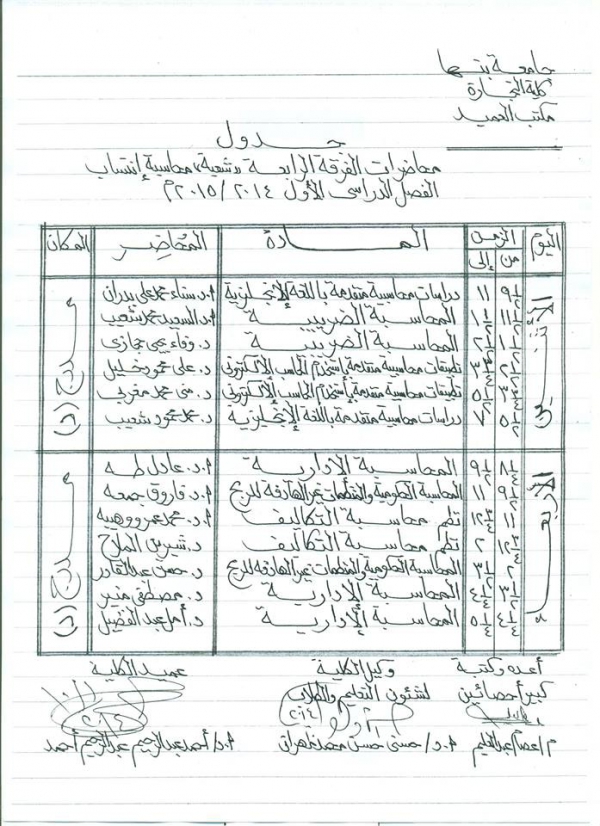 جامعة بنها
كلية التجارة
مكتب العميد
جدول
محاضرات الفرقة الرابعة "شعبة" محاسبة إنتساب
الفصل الدراسى الأول ٢٠١٤/٢٠١٥م
اليوم الزمن من إلى المادة المحاضر المكان
الإثنين مدرج
٩ ١/٢ ١١ دراسات محاسبية متقدمة باللغة الإنجليزية أ.د. سناء محمد على بدران
١١ ١ ١/٢ المحاسبة الضريبية أ.د. السعيد محمد شعيب
١ ١/٢ ٢ ١/٢ المحاسبة الضريبية د. وفاء يحيى حجازى
٢ ١/٢ ٣ تطبيقات محاسبية متقدمة بإستخدام الحاسب الإلكترونى د. على محمود خليل
٣ ٥ تطبيقات محاسبية متقدمة بإستخدام الحاسب الإلكترونى د. منى محمد مغربى
٥ ٧ دراسات محاسبية متقدمة باللغة الإنجليزية د. محمد محمود شعيب
الأربعاء مدرج
٨ ١/٤ ٩ ١/٢ المحاسبة الإدارية أ.د. عادل طه
٩ ١/٢ ١١ المحاسبة الحكومية والمنظمات غير الهادفة للربح أ.د. فاروق جمعه
١١ ١٢ ٣/٤ نظم محاسبة التكاليف أ.د. محمد عمرو وهيبه
١٢ ٣/٤ ٢ نظم محاسبة التكاليف د. شرين الملاح
٢ ٣ ١/٢ المحاسبة الحكومية والمنظمات غير الهادفة للربح د. حسن عبدالقادر
٣ ١/٢ ٤ ١/٤ المحاسبة الإدارية د. مصطفى منير
٤ ١/٤ ٥ ١/٤ المحاسبة الإدارية د. أمل عبد الفضيل
أعده وكتبة وكيل الكلية عميد الكلية
كبير أخصائين لشئون التعليم والطلاب
٢٠١٤ ٢٠١٤
م/عصام عبدالحليم أ.د/ حسنى حسن محمد أ.د/ أحمد عبدالرحيم عبدالرحيم أحمد